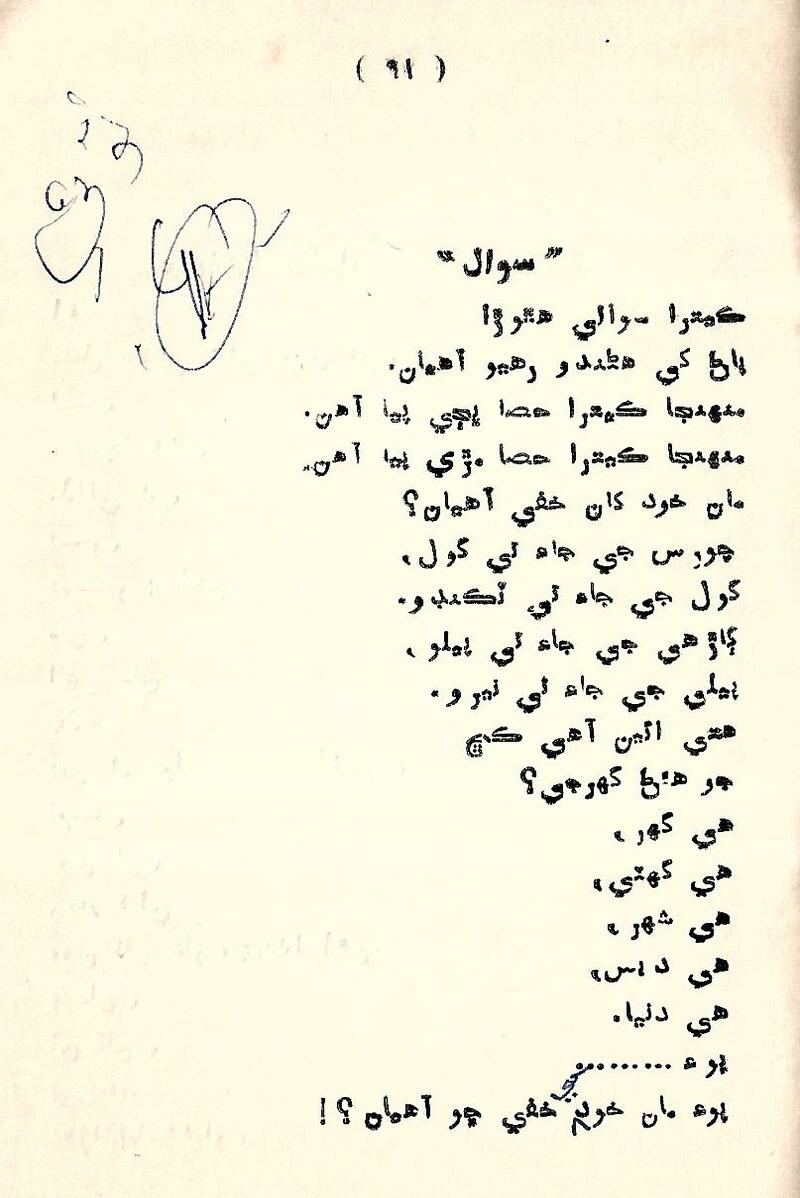 ( ۹۱ )
”سوال“
ڪيترا سوالي هٿوڙا
پاڻ کي هڻندو رهيو آهيان.
منهنجا ڪيترا حصا ڀڄي پيا آهن.
منهنجا ڪيترا حصا مڙي پيا آهن.
مان خود کان خفي آهيان؟
چورس جي جاءِ تي گول،
گول جي جاءِ تي ٽڪنڊو.
ڳاڙهي جي جاءِ تي پيلو،
پيلي جي جاءِ تي نيرو.
هتي ائين آهي ڪجهه
جو هئڻ گهرجي؟
هي گهر،
هي گهٽي،
هي شهر،
هي ديس،
هي دنيا.
پوءِ .........
پوءِ مان خود کي خفي ڇو آهيان؟!